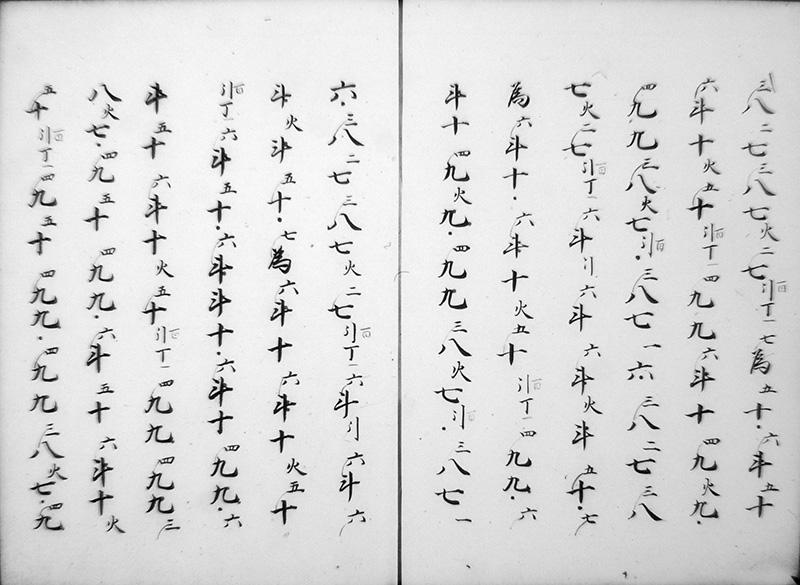 三八二七三八七火二七引百丁一七為五十・六斗五十
六斗十火五十引百丁一四九九六斗十四九火九・
四九九三八火七引百・三八七一六・三八二七三八
七火二七引百丁一六斗引六斗六斗火斗五十・七
為六斗十・六斗十火五十引百丁一四九九・六
斗十四九火九・四九九三八火七引百・三八七一
六・三八二七三八七火二七引百丁一六斗引六斗六
斗火斗五十・七為六斗十六斗十火五十
引百丁一六斗五十・六斗斗十・六斗十四九九・六
斗五十六斗十火五十引百丁一四九九四九九三
八火七・四九五十四九九・六斗五十六斗十火
五十引百丁一四九五十四九九・四九九三八火七・四九